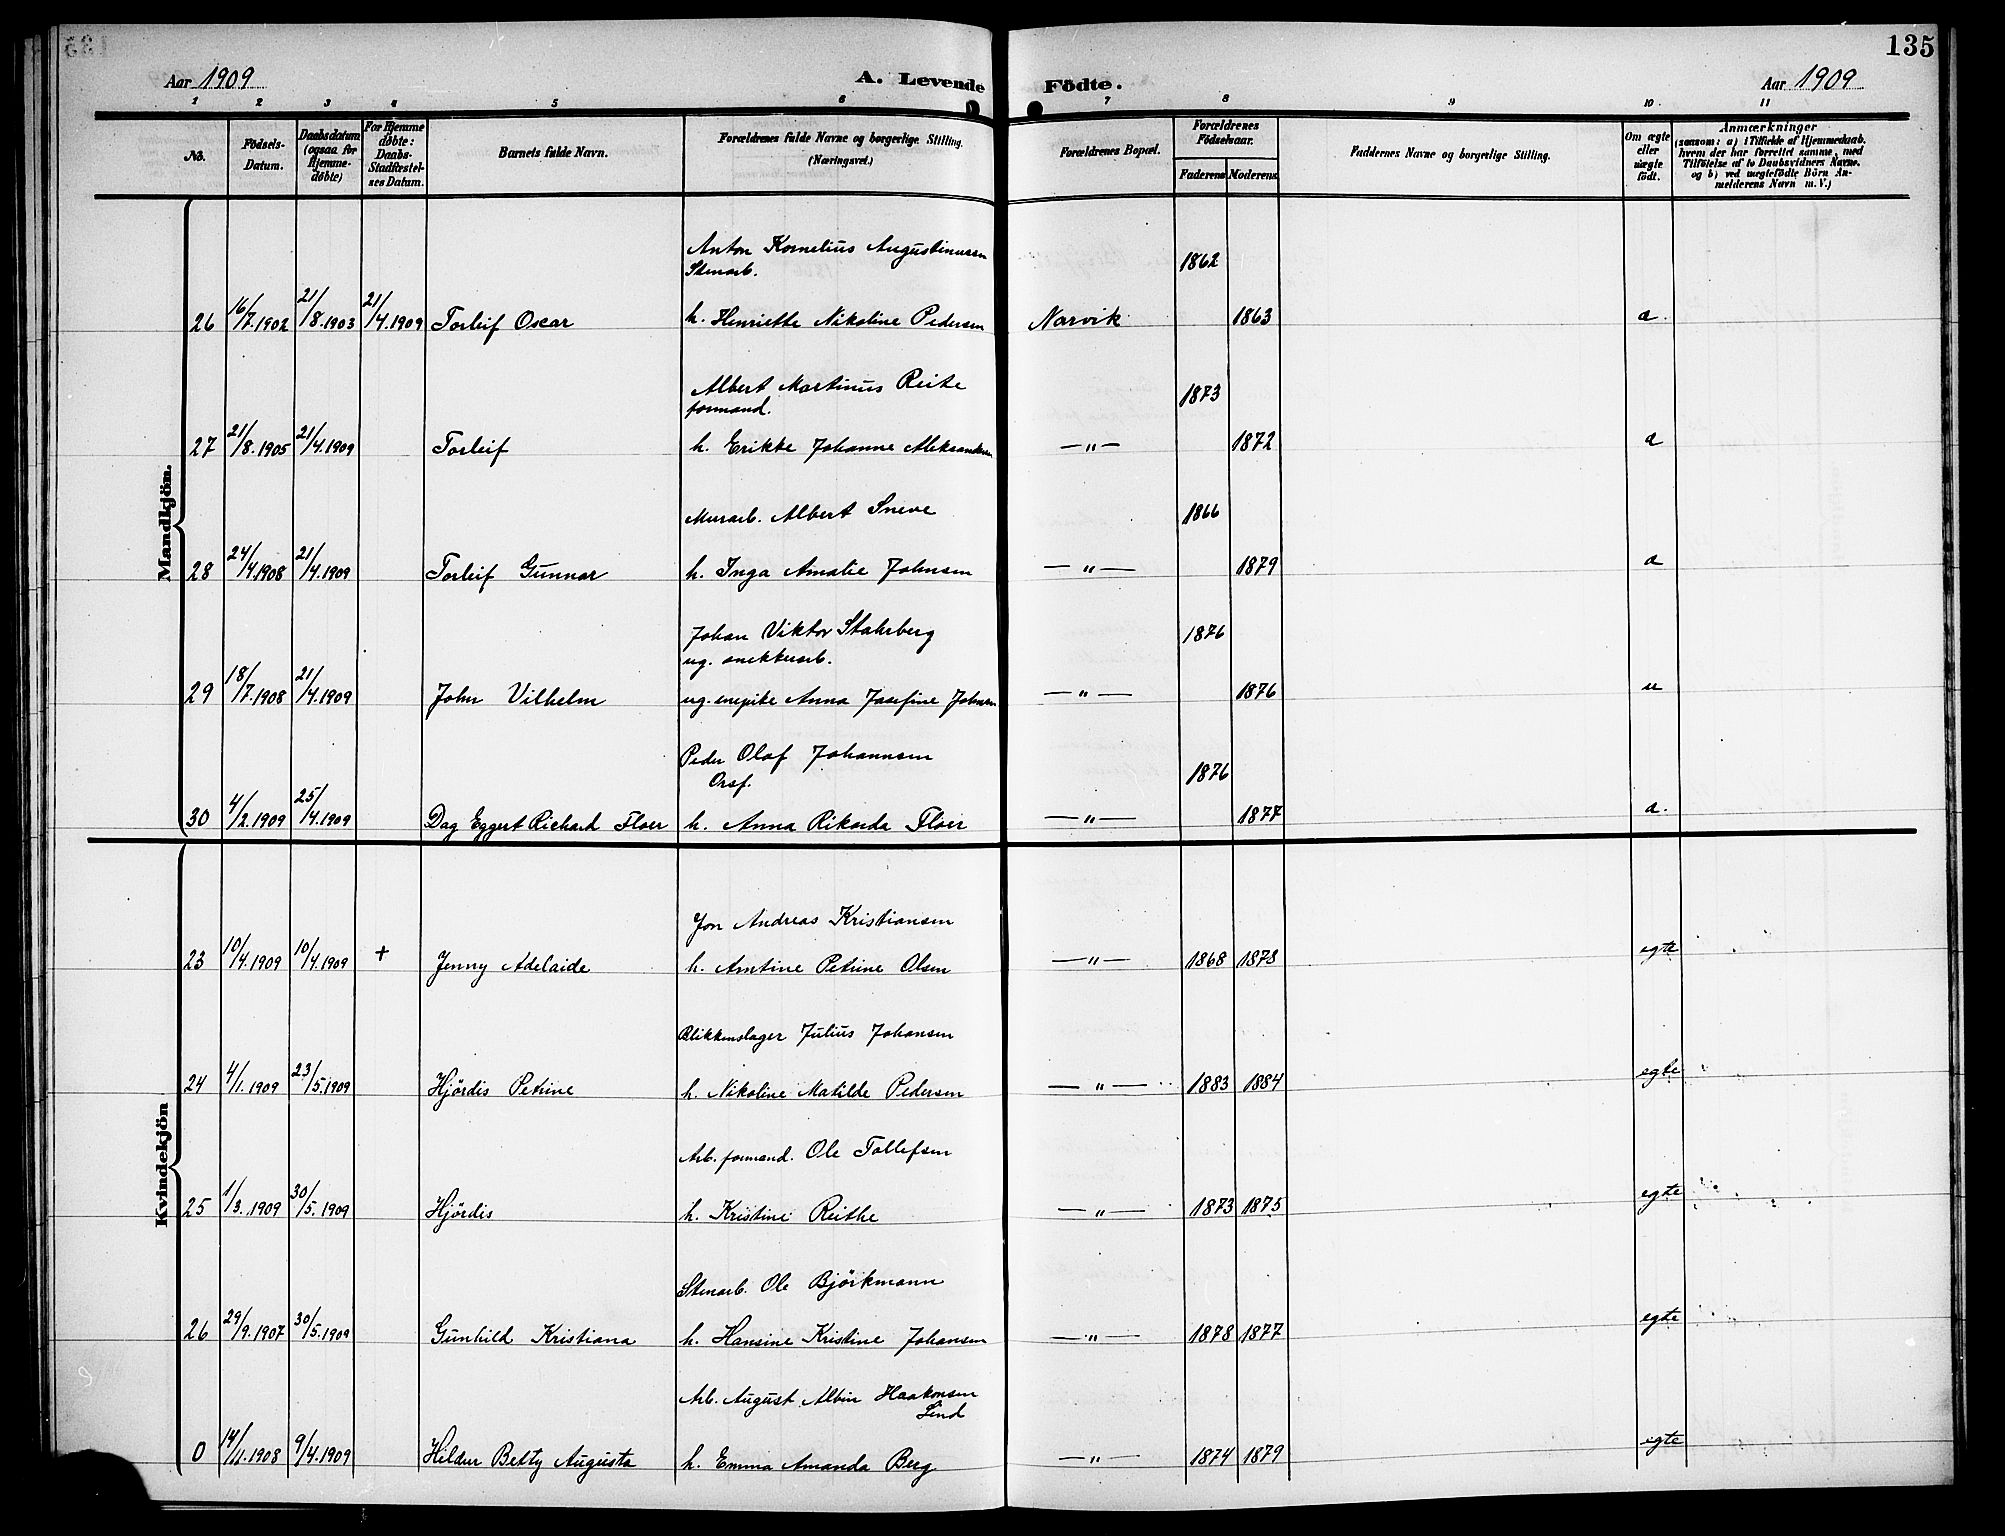 135
Aar 1909 A. Levende Födte. Aar 1909
1 2 3 4 5 6 7 8 9 10. 11
No. Födsels-Datum. Daabsdatum (ogsaa for Hjemme-døbte) For Hjemme døbte: Daabs-Stadfæstel-ses Datum. Barnets fulde Navn. Forældrenes fulde Navne og borgerlige Stilling. (Næringsvei.) Forældrenes Bopæl. Forældrenes Födselsaar. Faderens Moderens Faddernes Navne og borgerlige Stilling. Om ægte eller uægte födt. Anmærkninger (saasom: a) i Tilfælde af Hjemmedaab, hvem der har forrettet samme, med Tilföielse af to Daabsvidners Navne. og b) ved uægtefödte Börn An-melderens Navn m. V.)
Mandkjön.
Anton Kornelius Augustinussen
Stenarb. 1862
26 16/7.1902 21/8.1903 21/4.1909 Torleif Oscar h. Henriette Nikoline Pedersen Narvik 1863 a.
Albert Martinus Reite
formand. 1873
27 21/8.1905 21/4.1909 Torleif h. Erikke Johanne Aleksandersen —"— 1872 a
Murarb. Albert Sneve 1866
28 24/4.1908 21/4.1909 Torleif Gunnar h. Inga Amalie Johnsen —"— 1879 a
Johan Viktor Stahrberg 1876
ug. snekkerarb.
29 18/7.1908 21/4.1909 John Vilhelm ug. enepike Anna Josefine Johnsen —"— 1876 u
Peder Olaf Johannsen
Orsf. 1876
30 4/2.1909 25/4.1909 Dag Eggert Richard Floer h. Anna Rikarda Floer —"— 1877 a.
Kvindekjön
Jon Andreas Kristiansen
23 10/4.1909 10/4.1909 + Jenny Adelaide h. Amtine Petrine Olsen —"— 1868 1878 egte
Blikkenslager Julius Johansen
24 4/1.1909 23/5.1909 Hjördis Petrine h. Nikoline Matilde Pedersen —"— 1883 1884 egte
Arb. formand. Ole Tollefsen
25 1/3.1909 30/5.1909 Hjördis h. Kristine Reithe —"— 1873 1875 egte
Stenarb. Ole Björkmann
26 29/9.1907 30/5.1909 Gunhild Kristiana h. Hansine Kristine Johansen —"— 1878 1877 egte
Arb. August Albin Haakonsen
Lind
0 14/11.1908 9/4.1909 Hildur Betty Augusta h. Emma Amanda Berg —"— 1874 1879 egte